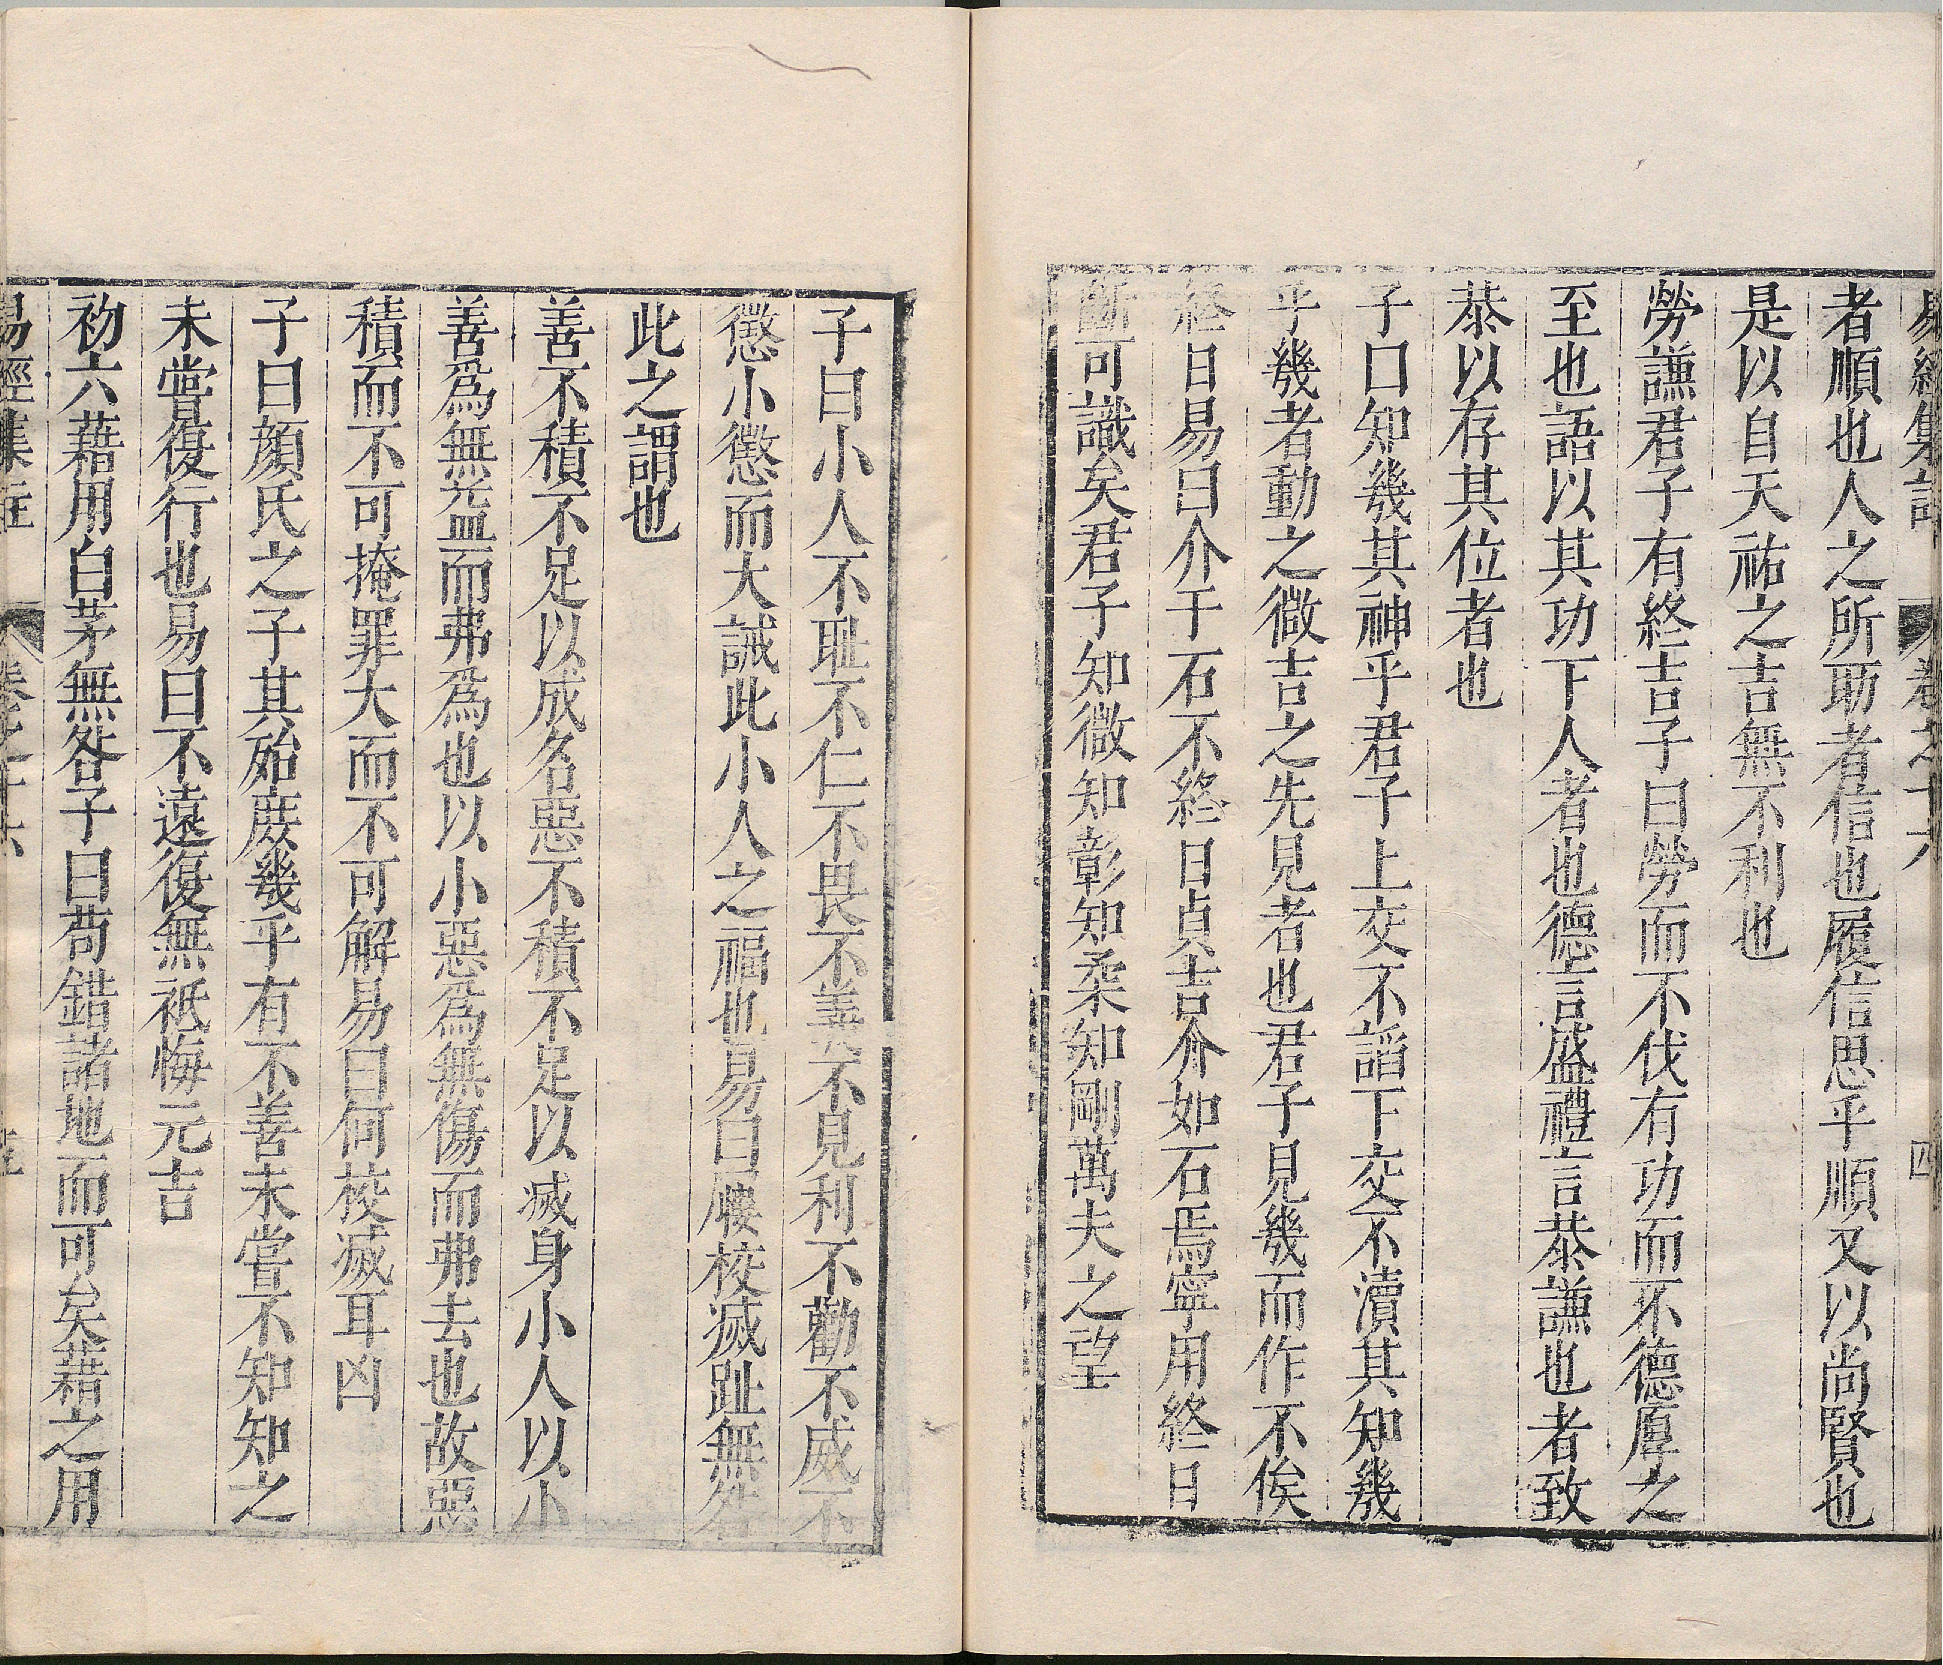 易經集註 卷之十六 四
者順也人之所助者信也履信思乎順又以尚賢也
是以自天祐之吉無不利也
勞謙君子有終吉子曰勞而不伐有功而不德厚之
至也語以其功下人者也德言盛禮言恭謙也者致
恭以存其位者也
子曰知幾其神乎君子上交不諂下交不瀆其知幾
乎幾者動之微吉之先見者也君子見幾而作不俟
終日易曰介于石不終日貞吉介如石焉寧用終日
斷可識矣君子知微知彰知柔知剛萬夫之望
子曰小人不耻不仁不畏不義不見利不勸不威不
懲小懲而大誡此小人之福也易曰屨校滅趾無咎
此之謂也
善不積不足以成名惡不積不足以滅身小人以小
善爲無益而弗爲也以小惡爲無傷而弗去也故惡
積而不可掩罪大而不可解易曰何校滅耳凶
子曰顏氏之子其殆庶幾乎有不善未嘗不知知之
未嘗復行也易曰不遠復無祗悔元吉
初六藉用白茅無咎子曰苟錯諸地而可矣藉之用
易經集註 卷之十六 五